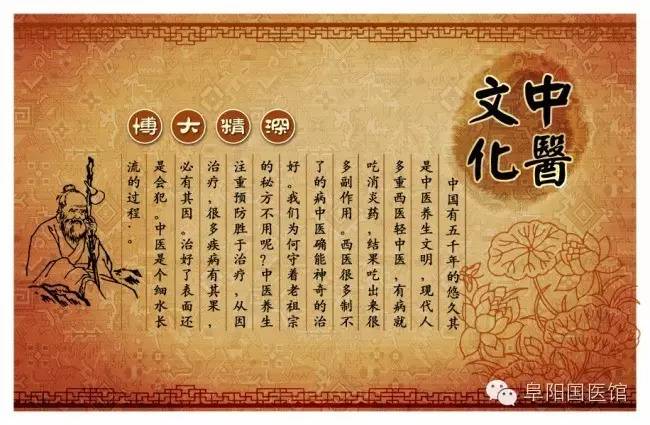 中醫
文化
博大精深
中国有五千年的悠久其
是中医养生文明，现代人
多重西医轻中医，有病就
吃消炎药，结果吃出来很
多副作用。西医很多制不
了的病中医确能神奇的治
好。我们为何守着老祖宗
的秘方不用呢？中医养生
注重预防胜于治疗，从因
治疗，很多疾病有其果，
必有其因。治好了表面还
是会犯。中医是个细水长
流的过程．。
阜阳国医馆